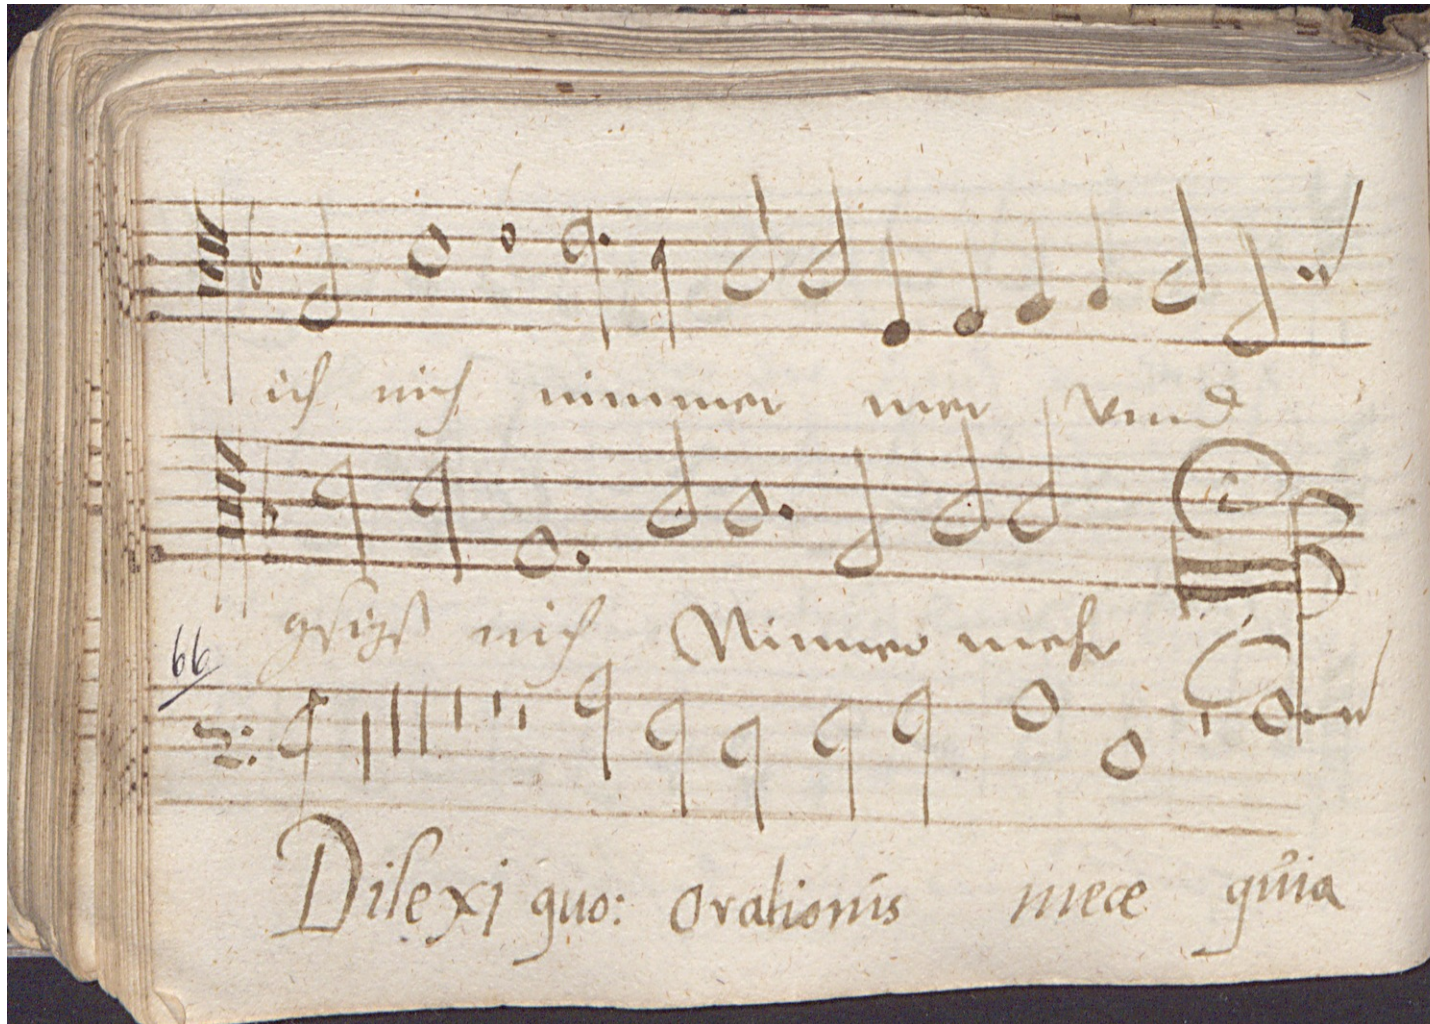 ich nich nimmer mer Vnnd
nich Nimmer mehr
66
Dilexi quo: orationis meæ quia